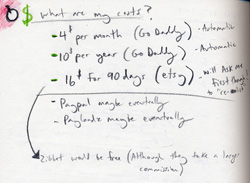 $ What are my costs?
- 4$ per month (Go Daddy) - Automatic
- 10$ per year (Go Daddy) - Automatic
- 16$ for 90 days (etsy) - will Ask me
first though
to "re-
- Paypal maybe eventually
- Payloadz maybe eventually
would be free (Although they take a larger
commission)